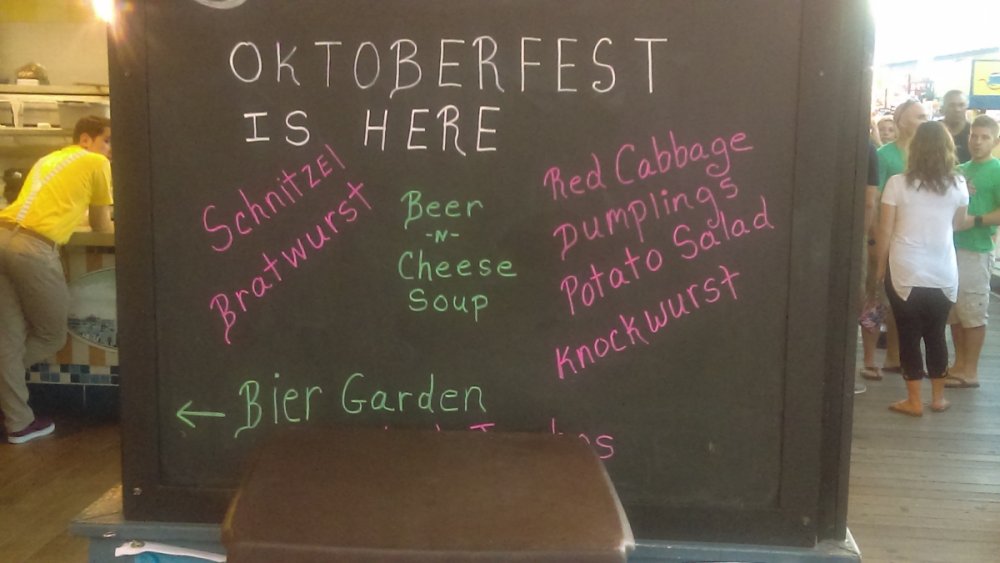 OKTOBERFEST
IS HERE
Schnitzel
Bratwurst
Beer
-N-
Cheese
Soup
Red Cabbage
Dumplings
Potato Salad
Knockwurst
← Bier Garden